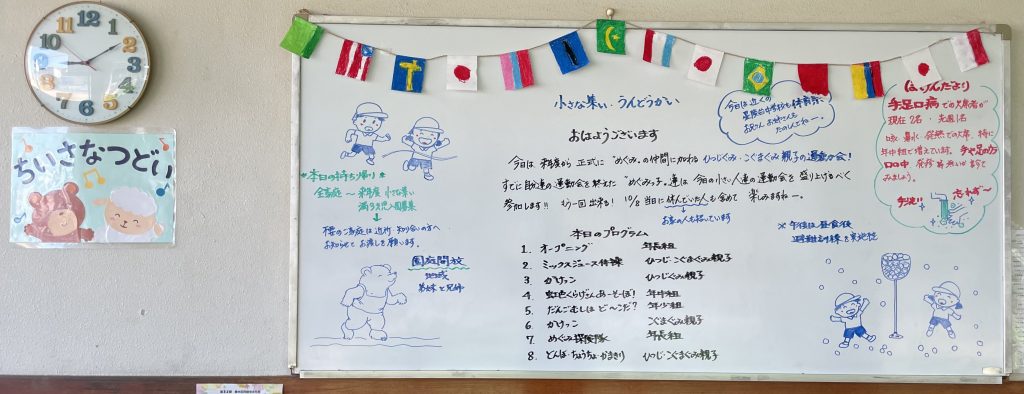 12
1
2
3
4
5
6
7
8
9
10
11
ちいさなつどい
小さな集い・うんどうかい
おはようございます
今日は 来年度から 正式に "めぐみ"の仲間に加わる ひつじぐみ・こぐまぐみ 親子の運動会!
すでに自分達の運動会を終えた "めぐみっ子"達は 今日の小さい人達の運動会を盛り上げるべく
参加します!! もう一回出来る! 10/8 当日に休んでいた人も含めて 楽しみますねー。
→お家の人も招いています
本日のプログラム
1. オープニング 年長組
2. ミックスジュース体操 ひつじ・こぐまぐみ親子
3. かけっこ ひつじぐみ親子
4. 虹色くらげさんあーそーぼ! 年中組
5. だんごむしは ど~こだ? 年少組
6. かけっこ こぐまぐみ親子
7. めぐみ探検隊 年長組
8. とんぼ・ちょうちょ・かまきり ひつじ・こぐまぐみ親子
*本日の持ち帰り*
全家庭 ~ 来年度 小さな集い
満3歳児入園募集
お知らせで お渡しを願います。
園庭開放
地域
弟妹と兄姉
今日は近くの
中学校も体育祭、
お兄さん お姉さんも
たのしんでねー。
ほけんだより
手足口病での欠席者が
現在2名・先週1名
咳・鼻水・発熱での欠席、特に
年中組で増えています。手や足の方
口の中
みましょう。
手洗い 忘れず~
※ 午後は 昼食後
避難訓練を実施